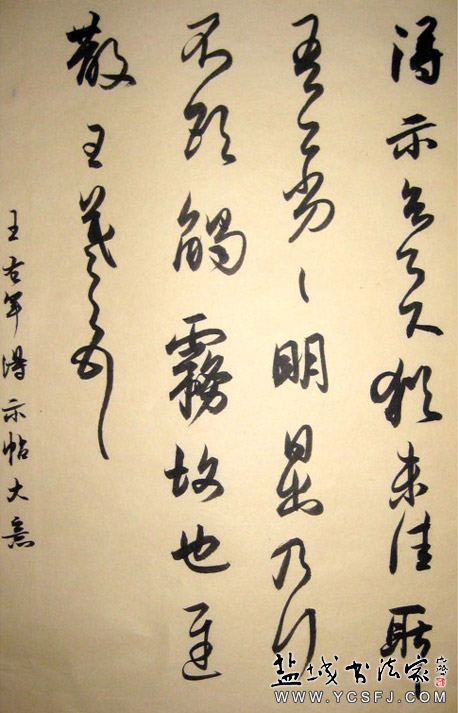 得示知足下猶未佳耿耿
吾亦劣々明日出乃行
不欲觸霧故也遲
散王羲之頓首
王右軍得示帖大意
盐城书法家
WWW.YCSFJ.COM